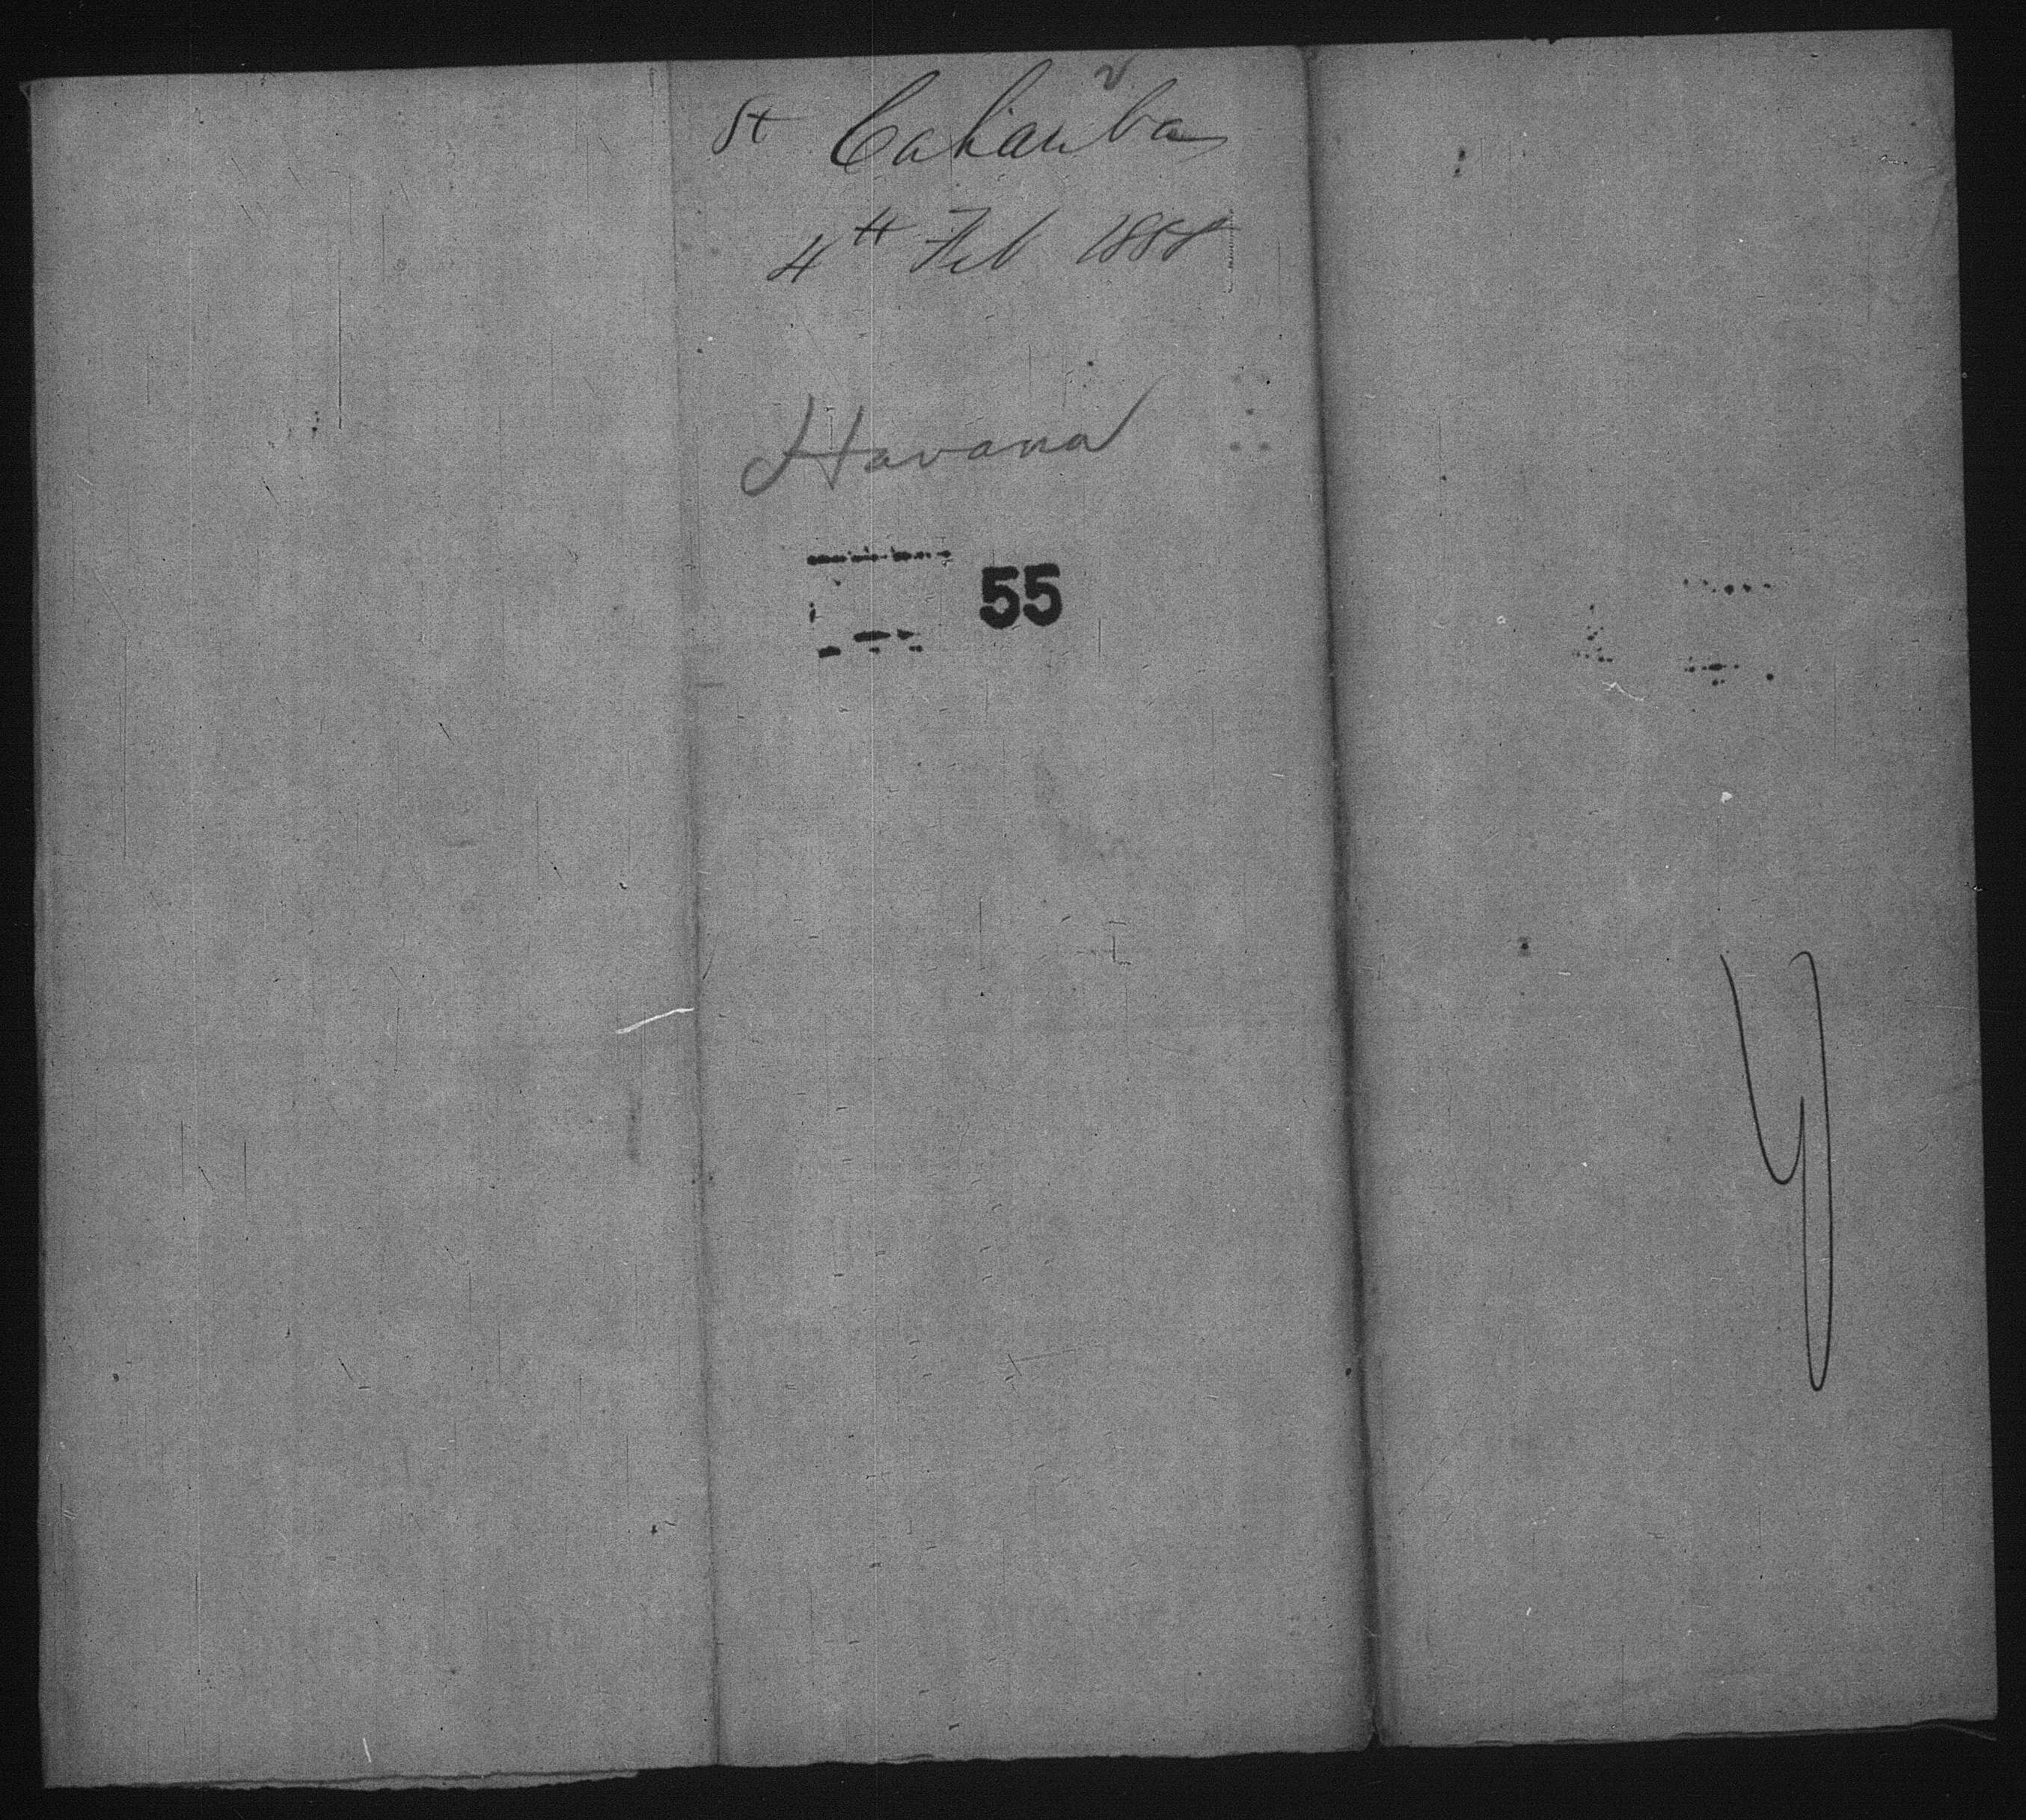 St Cahauba
4th Feb 1888
Havana
55